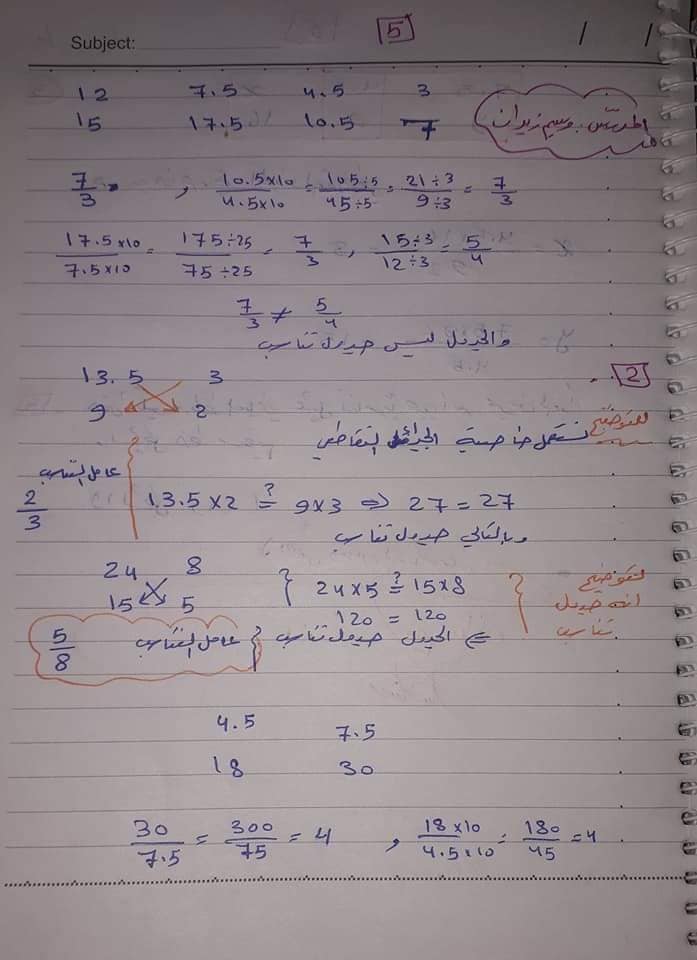 Subject: 5 / /
12 7.5 4.5 3
15 17.5 10.5 7
المدرّس: وسيم زيدان
7/3 , 10.5×10/4.5×10 = 105÷5/45÷5 = 21÷3/9÷3 = 7/3
17.5×10/7.5×10 = 175÷25/75÷25 = 7/3 , 15÷3/12÷3 = 5/4
7/3 ≠ 5/4
والجدول ليس جدول تناسب
2
13.5 3
9 2
للتوضيح نستعمل خاصية الجداء التقاطعي
عامل التناسب 2/3
13.5×2 ≟ 9×3 ⇒ 27 = 27
وبالتالي جدول تناسب
24 8
15 5
24×5 ≟ 15×8
120 = 120
لتوضيح
انه جدول
تناسب
⇐ الجدول جدول تناسب
عامل التناسب 5/8
4.5 7.5
18 30
30/7.5 = 300/75 = 4 , 18×10/4.5×10 = 180/45 = 4